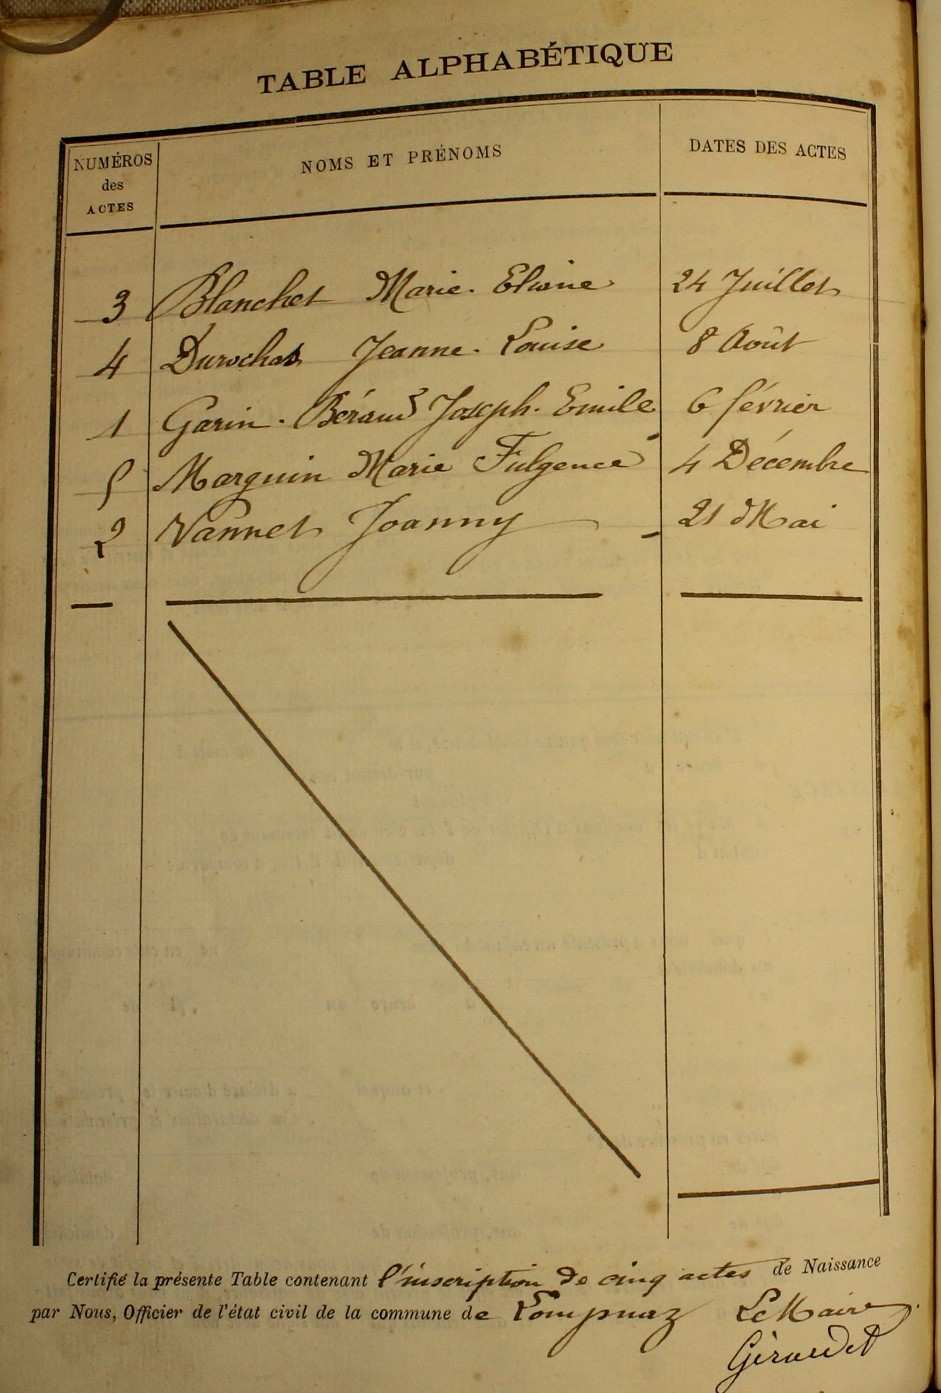 TABLE ALPHABÉTIQUE
NUMÉROS des ACTES NOMS ET PRÉNOMS DATES DES ACTES
3 Blanchet Marie-Eliane 24 Juillet
4 Durochat Jeanne-Louise 8 Août
1 Garin-Béraud Joseph-Emile 6 février
5 Marquin Marie Fulgence 4 Décembre
2 Vannet Joanny 21 Mai
Certifié la présente Table contenant l'inscription de cinq actes de Naissance
par Nous, Officier de l'état civil de la commune de Lompnaz Le Maire
Girardet